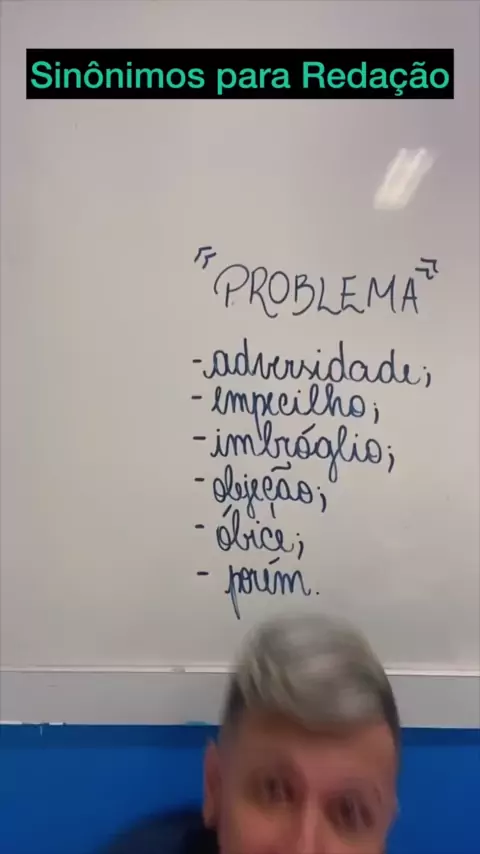 Sinônimos para Redação
"PROBLEMA"
- adversidade;
- empecilho;
- imbróglio;
- objeção;
- óbice;
- porém.